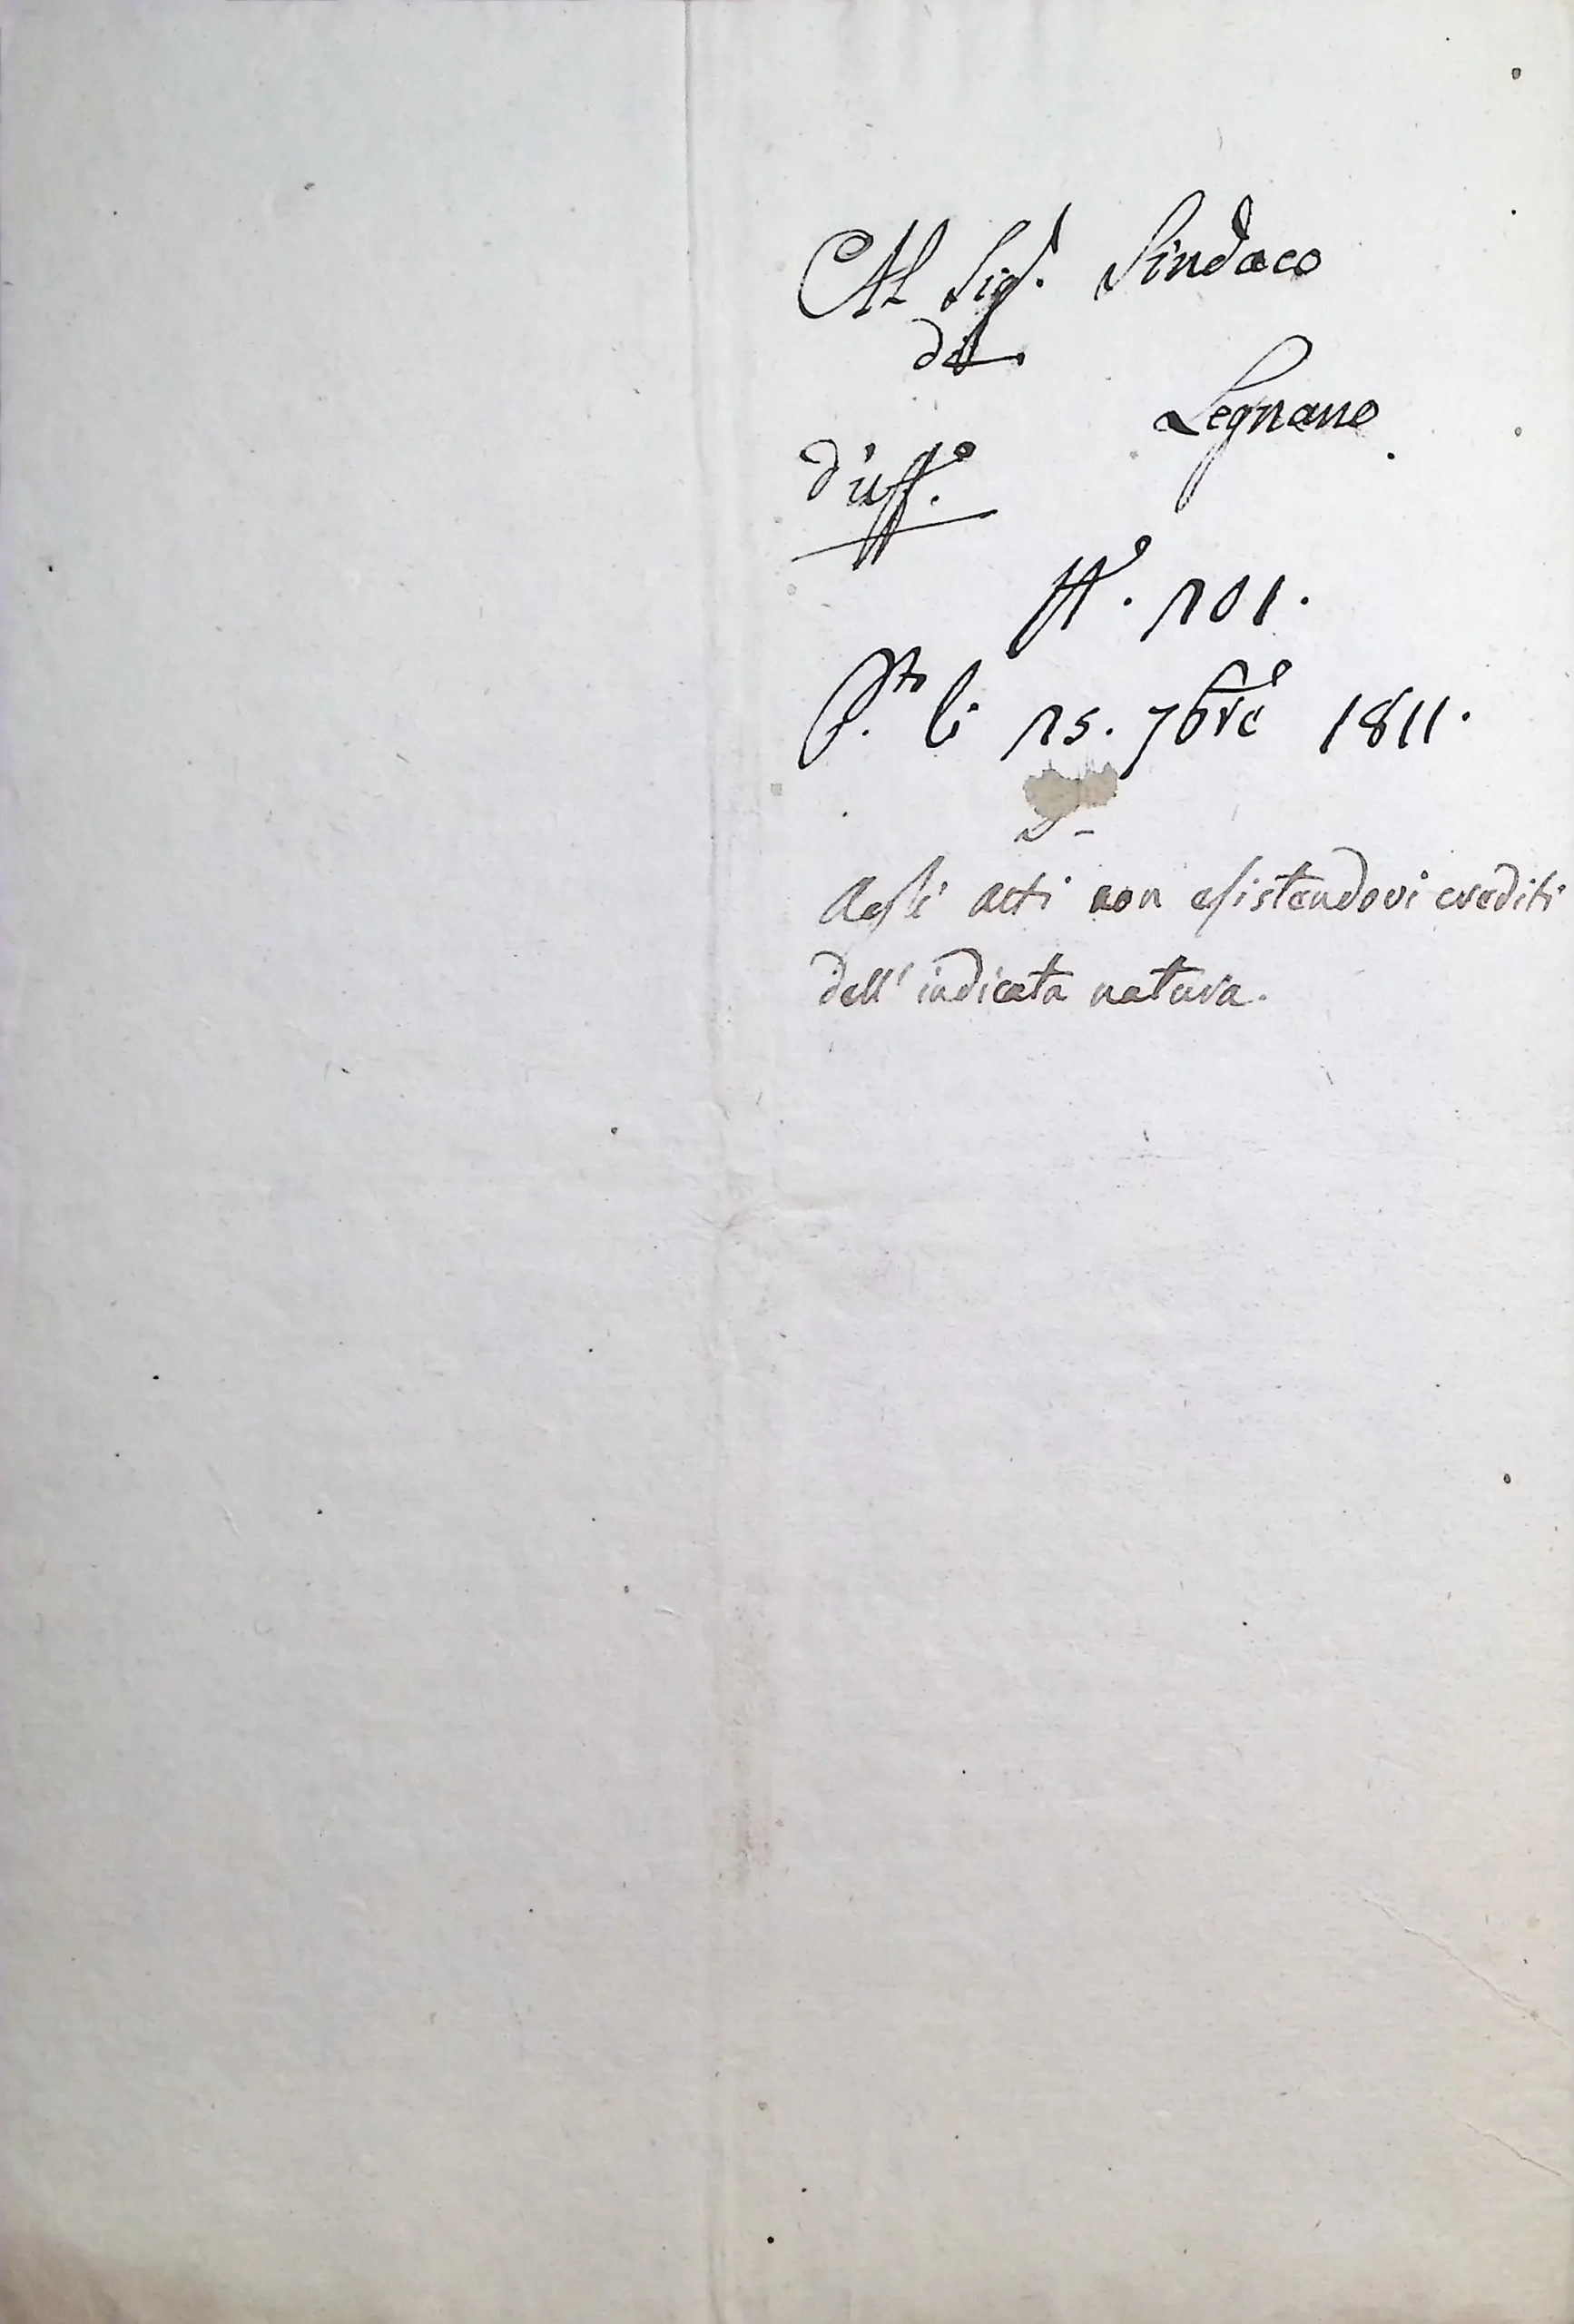 Al Sig.r Sindaco
di
Legnano
d'uff.o
N.o 201.
P.to li 25. 7bre 1811.
Agli atti non esistendovi crediti
dell'indicata natura.